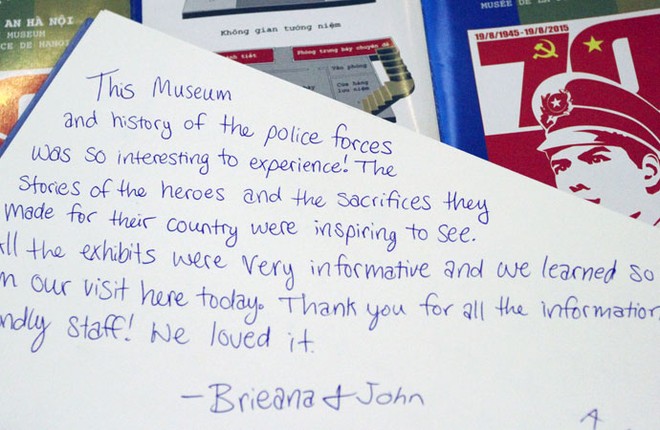 AN HÀ NỘI
MUSEUM
CE DE HANOÏ
Không gian tưởng niệm
Phòng trưng bày chuyên đề
MUSÉE DE LA
19/8/1945-19/8/2015
70
This Museum
and history of the police forces
was so interesting to experience! The
stories of the heroes and the sacrifices they
made for their country were inspiring to see.
All the exhibits were very informative and we learned so
our visit here today. Thank you for all the information
ndly staff! We loved it.
- Brieana & John